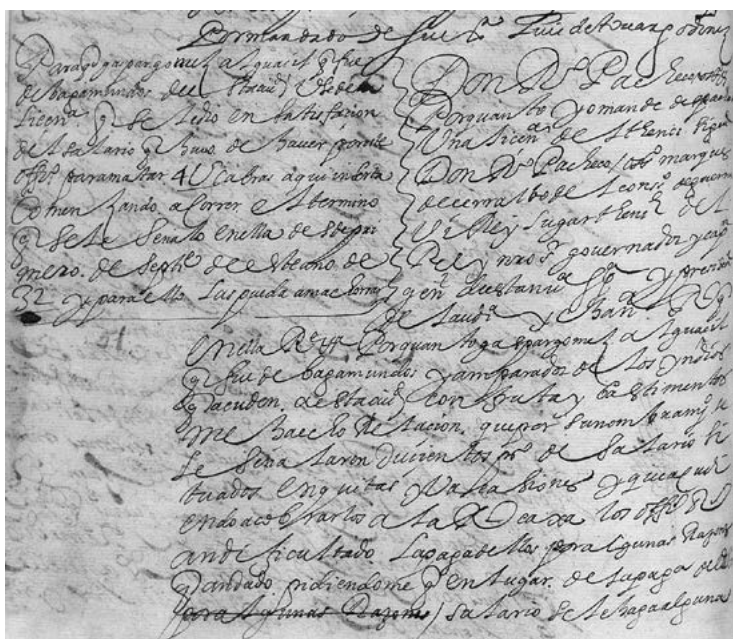 Por mandado de su exª Luis de Tovar godinez
Para q gaspar gomez alguacil q fue
de bagamundos desta ciud use de la
licenª q se le dio en satisfacion
del salario q huvo de haver por este
offº para matar 4U cabras aqui inserta
Comenzando a Correr el termino
q se le señalo en ella desde pri
mero de septe deste año de
32 y para ello las pueda amachorrar
Don Rº Pacheco
Por quanto yo mande despachar
Una licenª del thenor siguiente
Don Rº Pacheco / marques
de cerralbo del consº de guerra
Rey su lugar theniᵉ
Rey nrо sʳ governador y capᵃⁿ
genˡ desta nuª spª y presidᵉ
de la audª y chanª Rˡ q
en ella Reside Por quanto gaspar gomez alguacil
q fue de bagamundos y amparador de los yndios
q acuden a esta ciud con fruta y bastimentos
me hizo Relacion que por su nombramº
se le señalaron ducientos ps de salario si
tuados en quitas y vacaciones y que acudi
endo a cobrarlos a la Rˡ caxa los offes Rˢ
an dificultado la paga dellos por algunas Razones
q an dado pidiendome q en lugar de la paga del dho
por algunas Razones / salario se le haga alguna